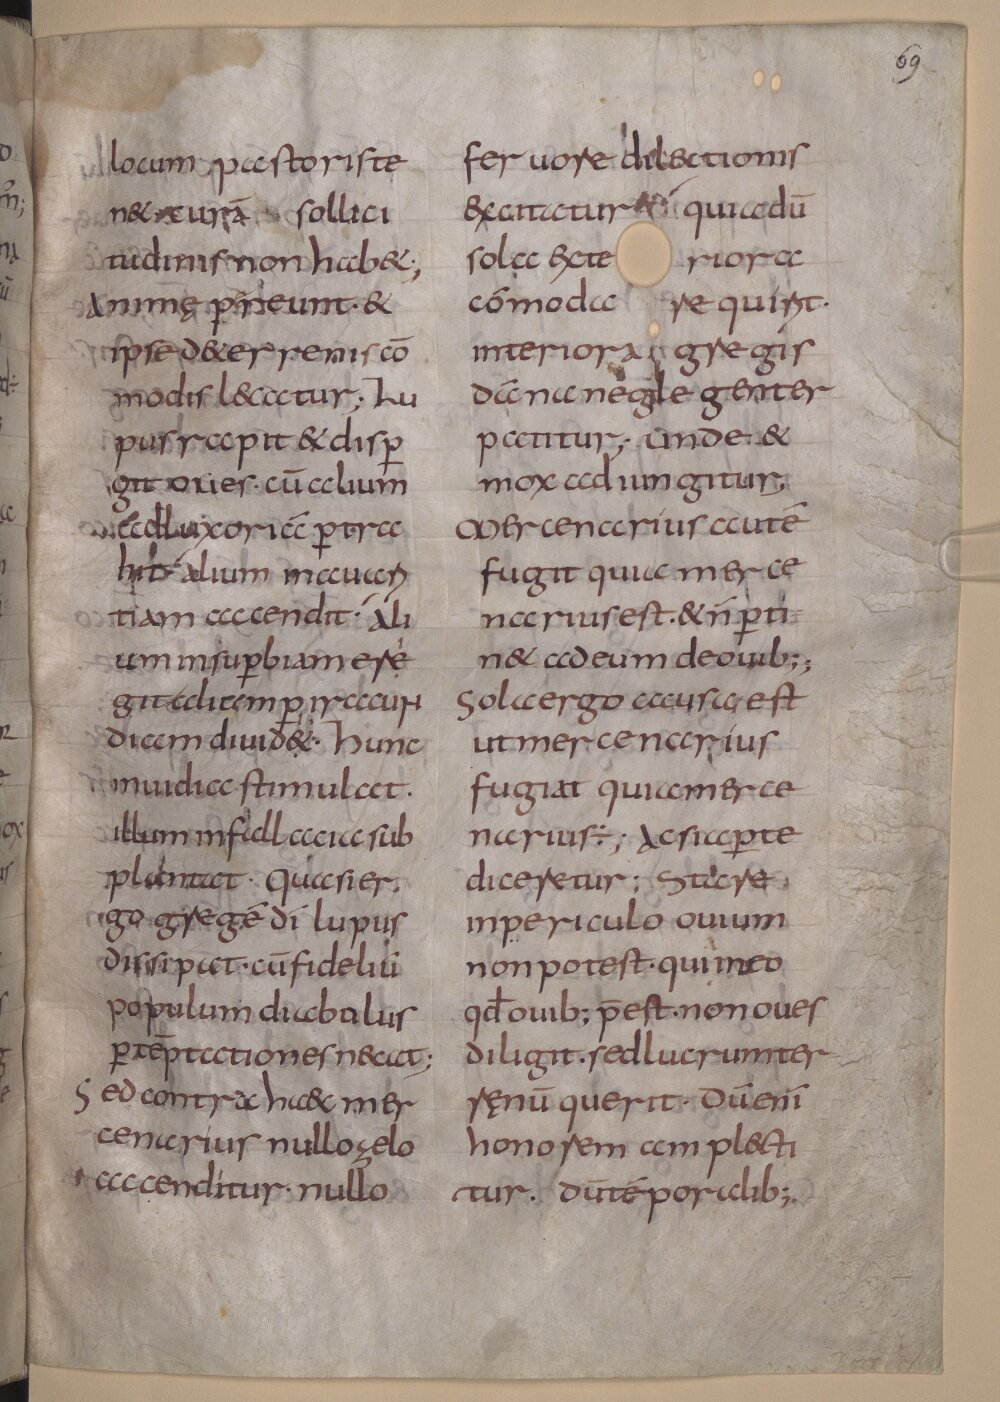 69
locum pastoris te
n& curā sollici
tudinis non hab&;
Animę p̱ereunt· &
ipse de terrenis cō
modis l&atur; Lu
pus rapit & disp̱
git oues· cū alium
ad luxoriā p̱tra
hit alium in auari
tiam accendit· Ali
um in sup̱biam ere
git alitem p̱ iracun
diam diuid&· hunc
inuidia stimulat·
illum in fallacia sub
plantat· Quasi er
go gregē di lupus
dissipat· cū fideliū
populum diabulus
p̱ tēptationes necat;
Sed contra haec mer
cenarius nullo zelo
accenditur· nullo
feruore dilectionis
excitatur quia dū
sola exteriora
cōmoda requirit·
interiora gregis
dāna neglegenter
patitur; unde &
mox adiungitur;
Mercenarius autē
fugit quia merce
narius est· & n̄ p̱ti
n& ad eum de ouib;;
Sola ergo causa est
ut mercenarius
fugiat quia merce
narius÷; Ac si ap̱te
diceretur; Stare
in periculo ouium
non potest· qui in eo
qđ ouib; p̄est· non oues
diligit· sed lucrum ter
renū querit· Dū enī
honorem amplecti
tur· dū tēporalib;